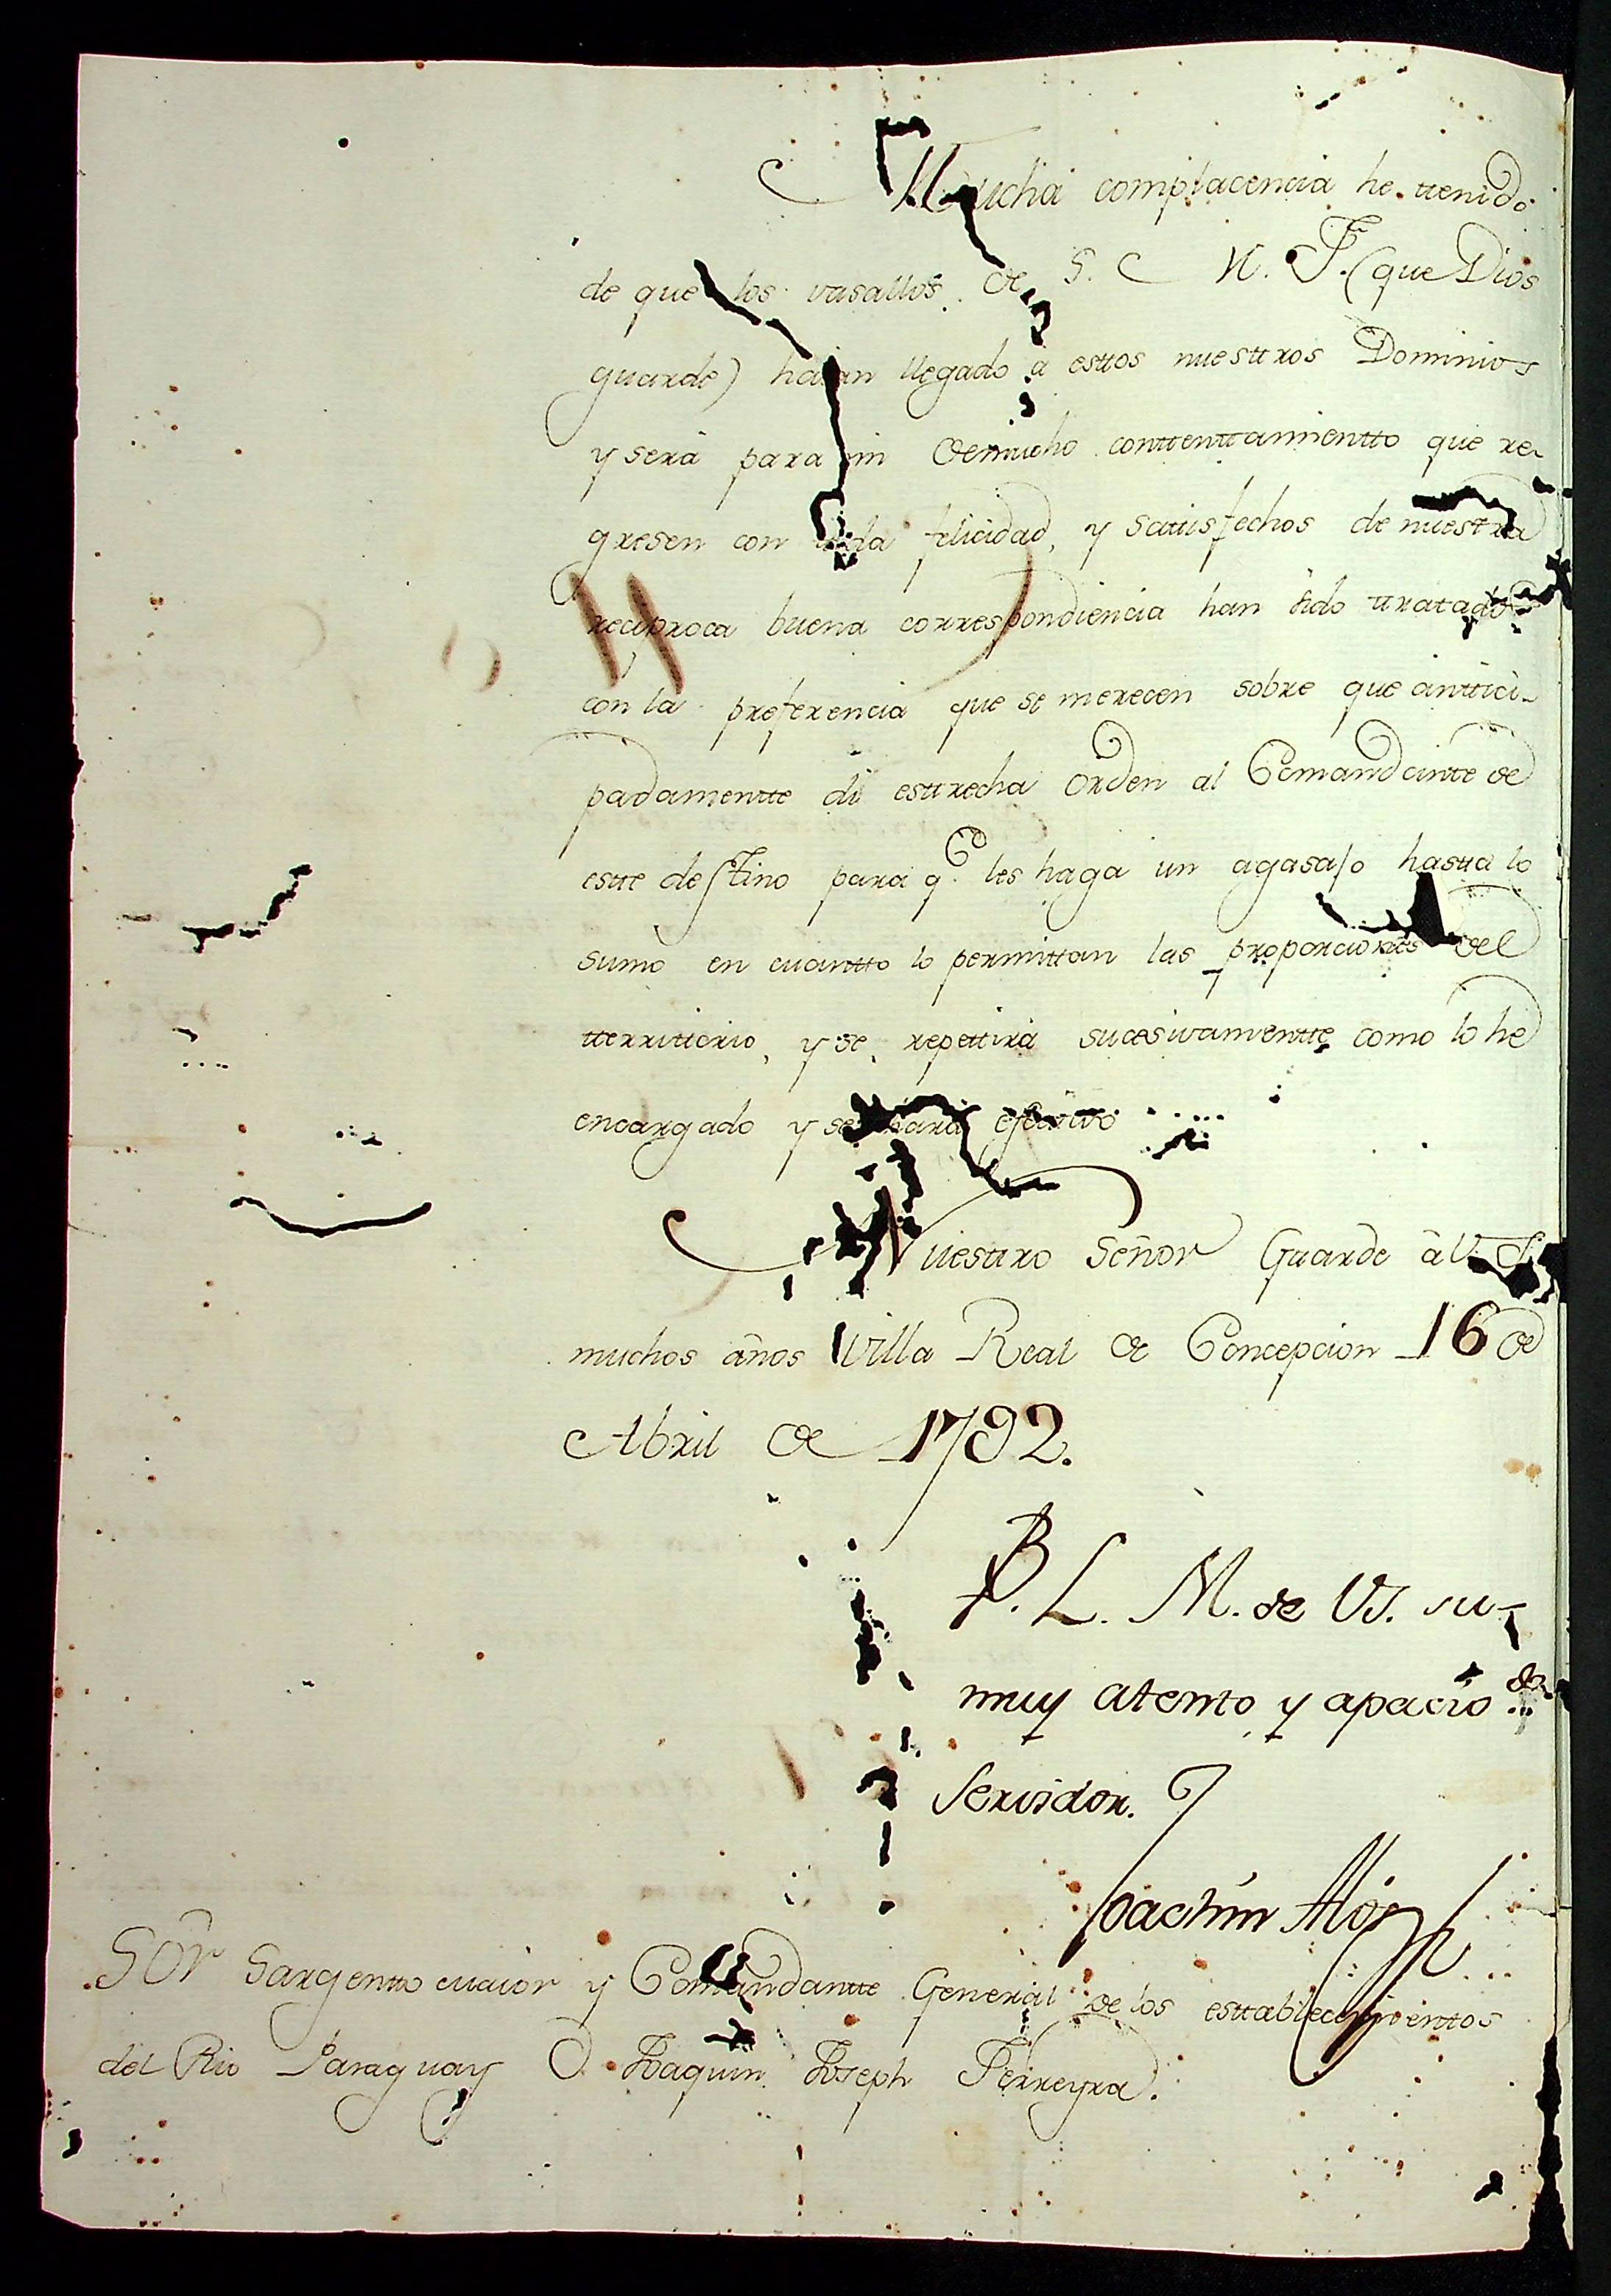 Mucha complacencia he ttenido
de que los vasallos de S. M. F. (que Dios
guarde) haian llegado a esttos nuesttros Dominios
y serà para mi de mucho conttenttamientto que re-
gresen con toda felicidad, y sattisfechos de nuestra
reciproca buena correspondiencia han sido ttratados
con la preferencia que se merecen sobre que anttici-
padamentte di esttrecha orden al Comandante de
estte desTino para q.e les haga un agasajo hastta lo
sumo en cuantto lo permittan las proporciones del
tterrittorio, y se repettirà sucesivamentte como lo he
encargado y se harà efectivo
Nuesttro Señor Guarde à V. S.
muchos años Villa Real de Concepcion 16 de
Abril de 1792.
B. L. M. de VS. su
muy atento y apacio.do
Servidor.
Joachin Alós
Sor Sargentto maior y Comandantte General de los esttablecimienttos
del Rio Paraguay D. Joaquin Joseph Ferreyra.